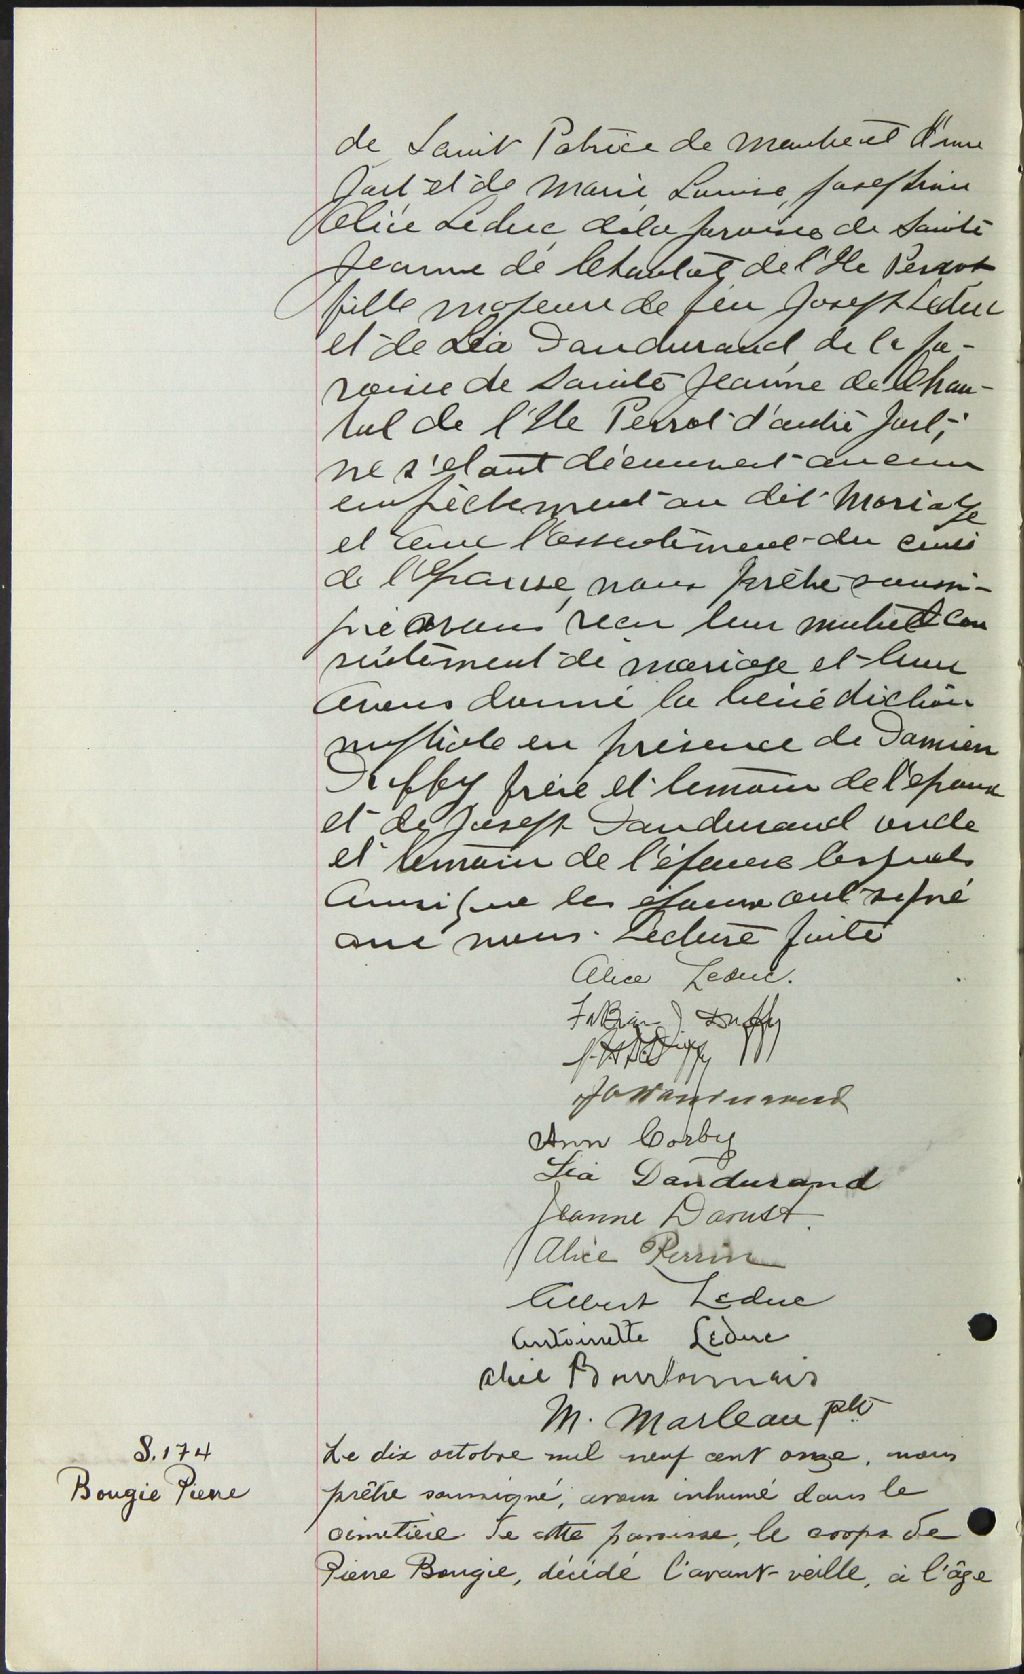 de Saint Patrice de Montréal d'une
part et de Marie Louise Josephine
Alice Leduc de la paroisse de Sainte
Jeanne de Chantal de l'Ile Perrot
fille majeure de feu Joseph Leduc
et de Léa Dandurand de la pa-
roisse de Sainte Jeanne de Chan-
tal de l'Ile Perrot d'autre part;
ne s'étant découvert aucun
empêchement au dit Mariage
et avec l'assentiment du curé
de l'Epouse, nous prêtre soussi-
gné avons reçu leur mutuel con
sentement de mariage et leur
avons donné la bénédiction
nuptiale en présence de Damien
Duffy frère et témoin de l'époux
et de Joseph Dandurand oncle
et témoin de l'épouse lesquels
ainsi que les époux ont signé
avec nous. Lecture faite
Alice Leduc.
Fabian J Duffy
Duffy
Dandurand
Ann Corby
Léa Dandurand
Jeanne Daoust.
Alice Perrin
Albert Leduc
Antoinette Leduc
Alice Bourbonnais
M. Marleau ptr
S. 174
Bougie Pierre
Le dix octobre mil neuf cent onze, nous
prêtre soussigné, avons inhumé dans le
cimetière de cette paroisse, le corps de
Pierre Bougie, décédé l'avant-veille, à l'âge